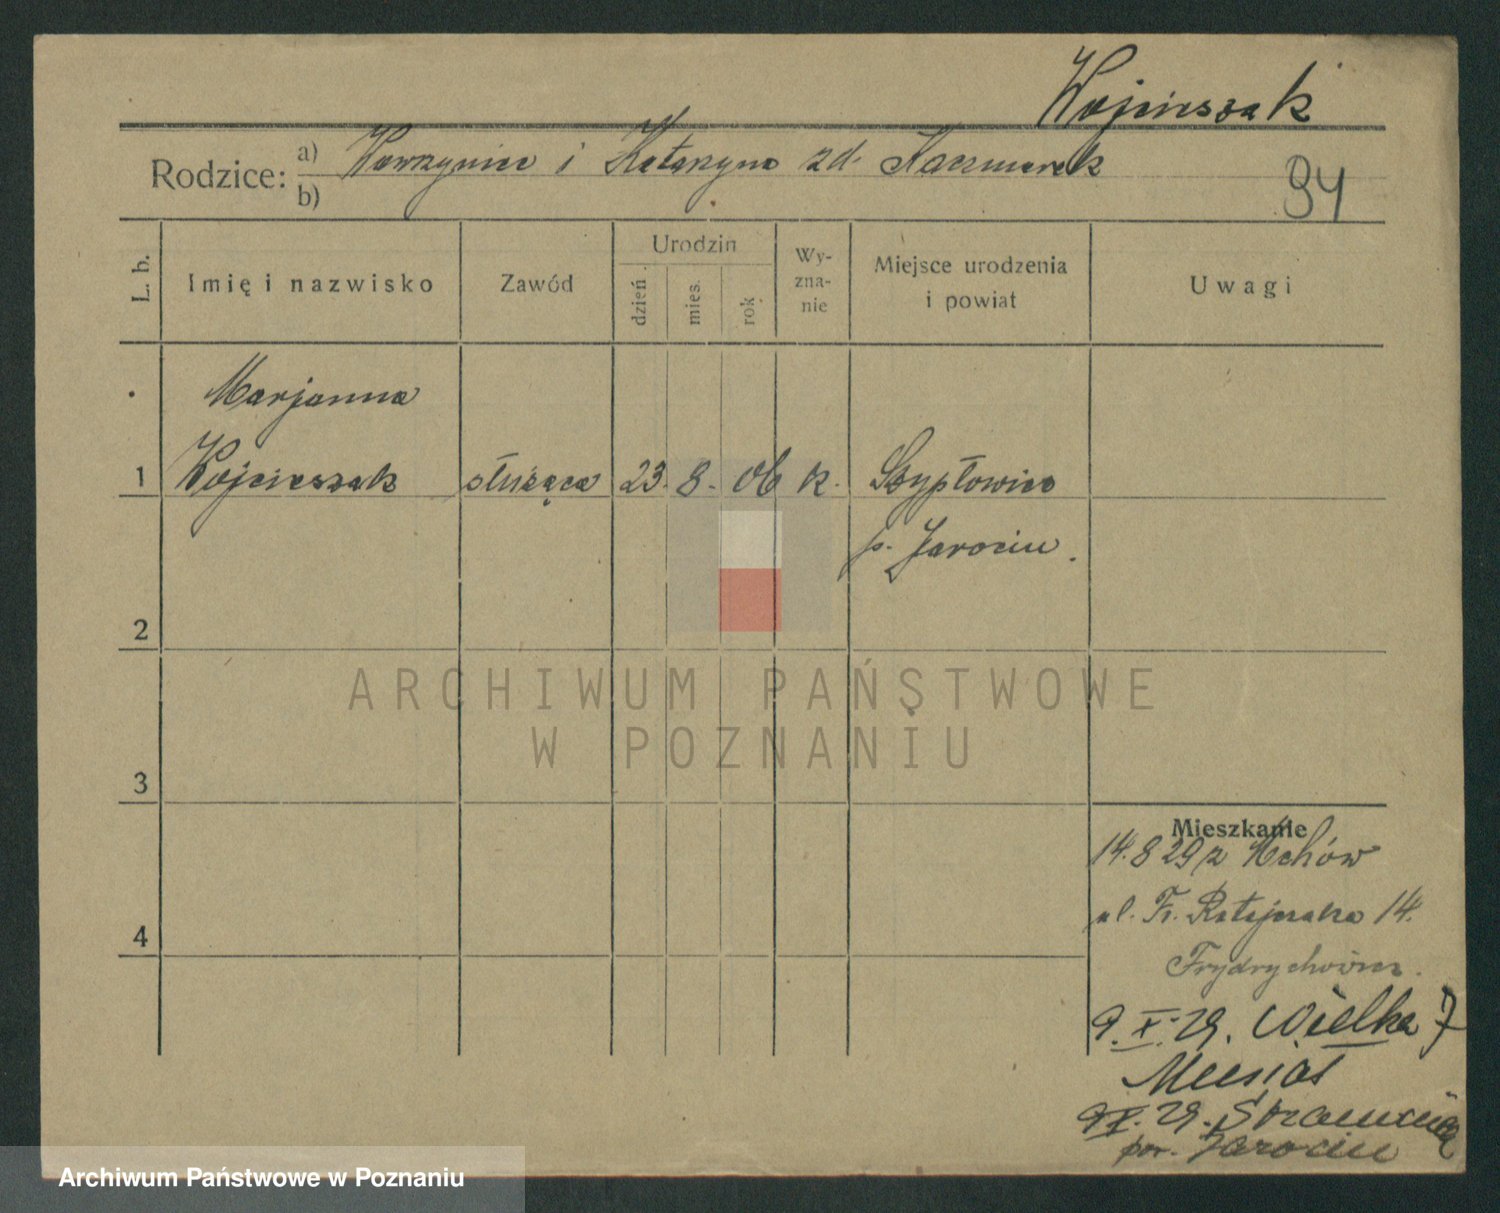 Wojcieszak
Rodzice: a) Wawrzyniec i Katarzyna zd. Kaczmarek
b)
94
L. b.
Imię i nazwisko
Zawód
Urodzin
dzień
mies.
rok
Wy-
zna-
nie
Miejsce urodzenia
i powiat
Uwagi
Marjanna
1 Wojcieszak służąca 23. 8. 06 k. Szypłowice
p. Jarocin.
2
ARCHIWUM PAŃSTWOWE
W POZNANIU
3
Mieszkanie
14.8 29 z Mchów
ul. Fr. Ratajczaka 14.
4
Frydrychowicz.
9.X.29. Wielka 7
9X.29.
pow. Jarocin
Archiwum Państwowe w Poznaniu